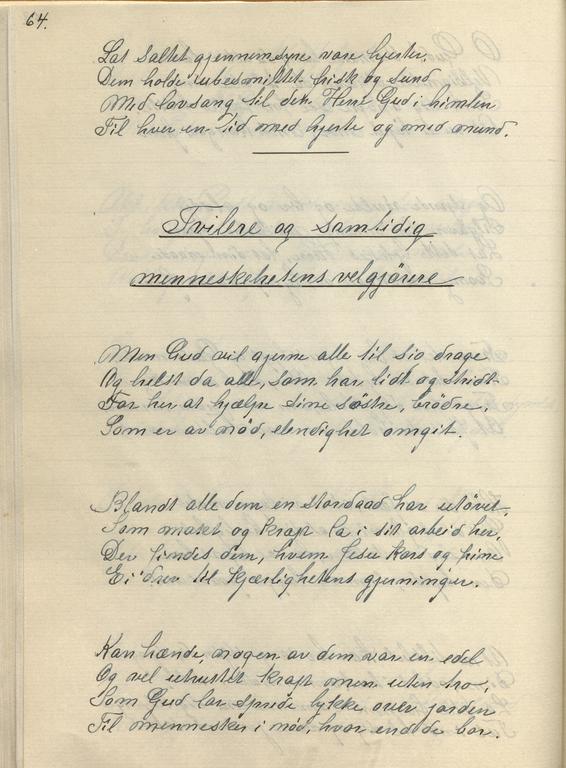 64.
Lat saltet gjennemsyre vare hjerter,
Dem holde ubesmittet frisk og sund
Med lovsang til den Herre Gud i himlen
Til hver en tid med hjerte og med mund.
Tvilere og samtidig
menneskehetens velgjörere
Men Gud vil gjerne alle til sig drage
Og helst da alle, som har lidt og stridt
For her at hjælpe sine söstre, brödre,
Som er av nöd, elendighet omgit.
Blandt alle dem en stordaad har utövet,
Som makt og kraft la i sit arbeid her,
Der findes dem, hvem Jesu kors og pine
Ei drev til kjærlighetens gjerninger.
Kan hænde, nogen av dem var en edel
Og vel utrustet kraft men uten tro,
Som Gud lar sprede lykke over jorden
Til mennesker i nöd, hvor end de bor.